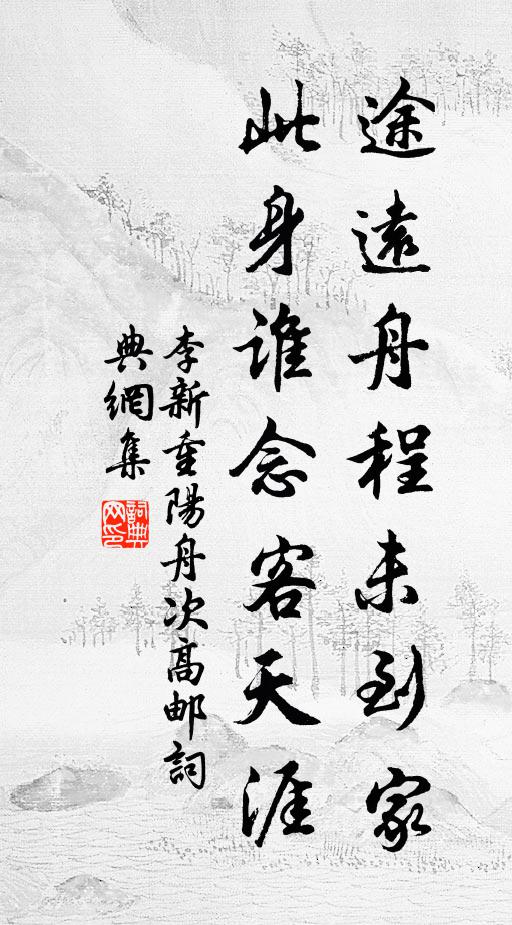 途遠舟程未到家
此身誰念客天涯
李新重陽舟次高邮詞
典網集
詞典网印